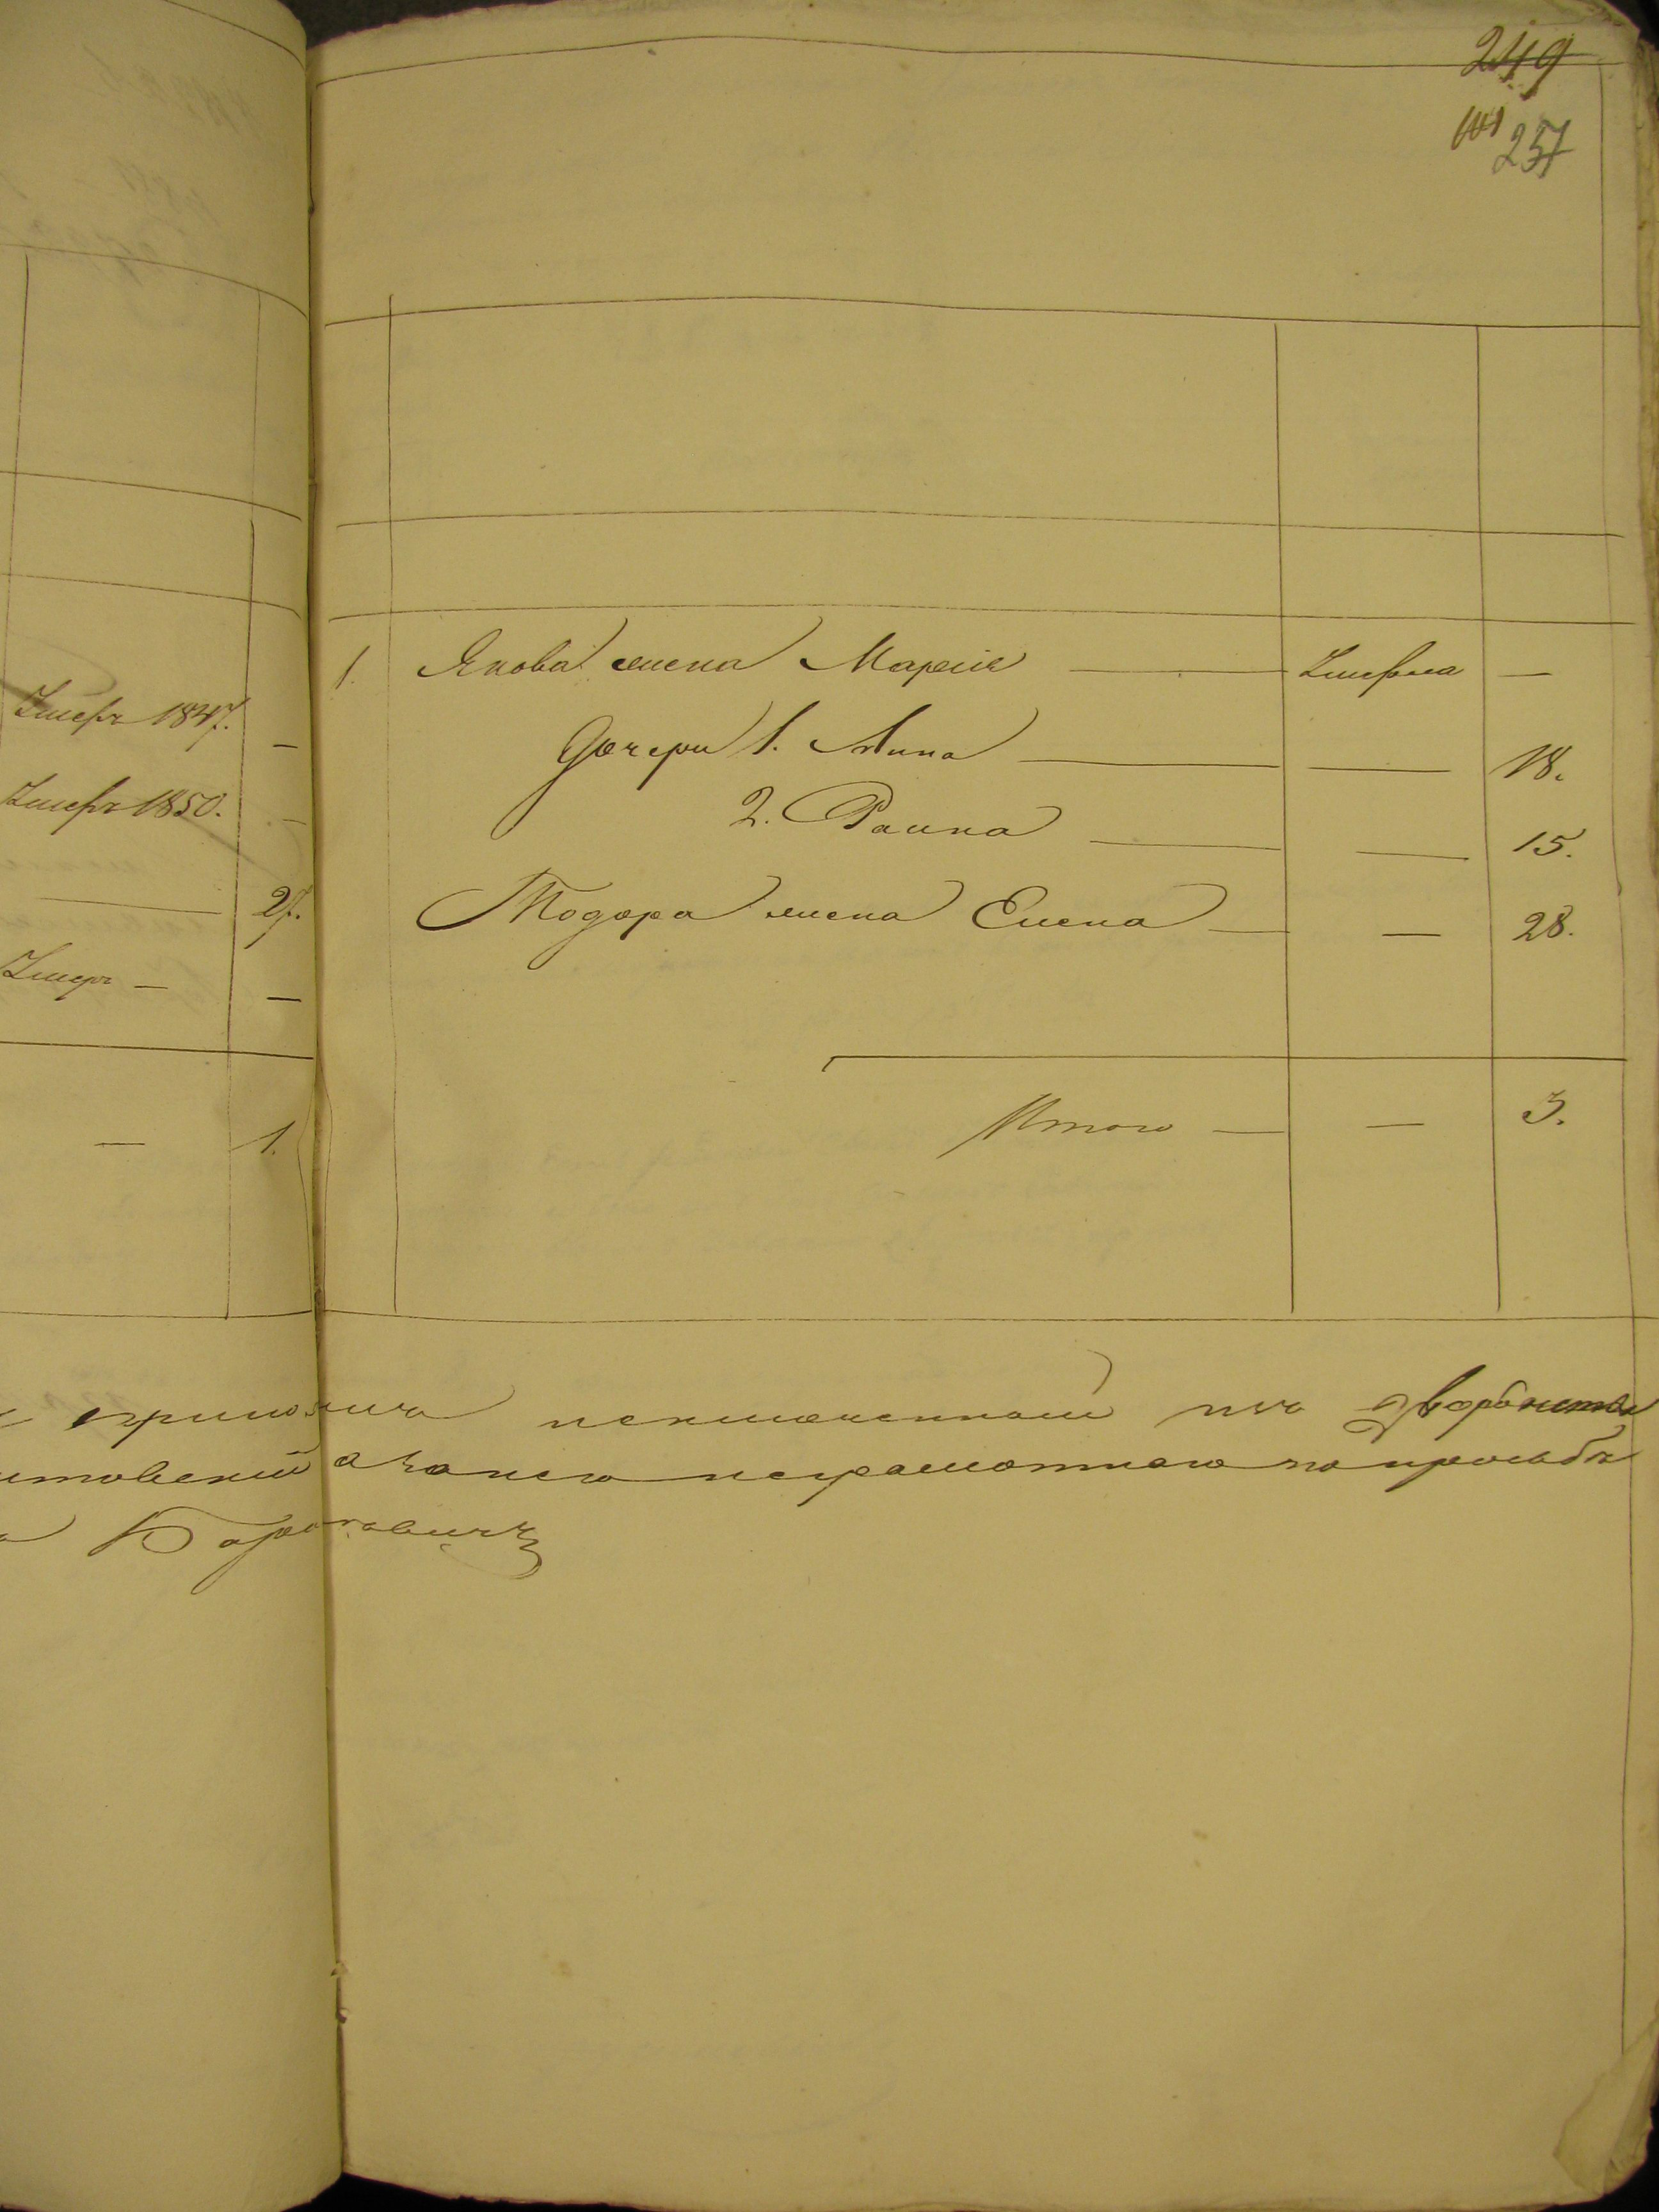 249
257
Умеръ 1847. —
Умеръ 1850. —
— 27.
Умеръ — —
— 1.
1. Якова жена Марія — Умерла —
Дочери 1. Анна — — 18.
2. Раина — — 15.
Тодора жена Елена — — 28.
Итого — — 3.
изъ дворянства
а за него неграмотнаго по просьбѣ